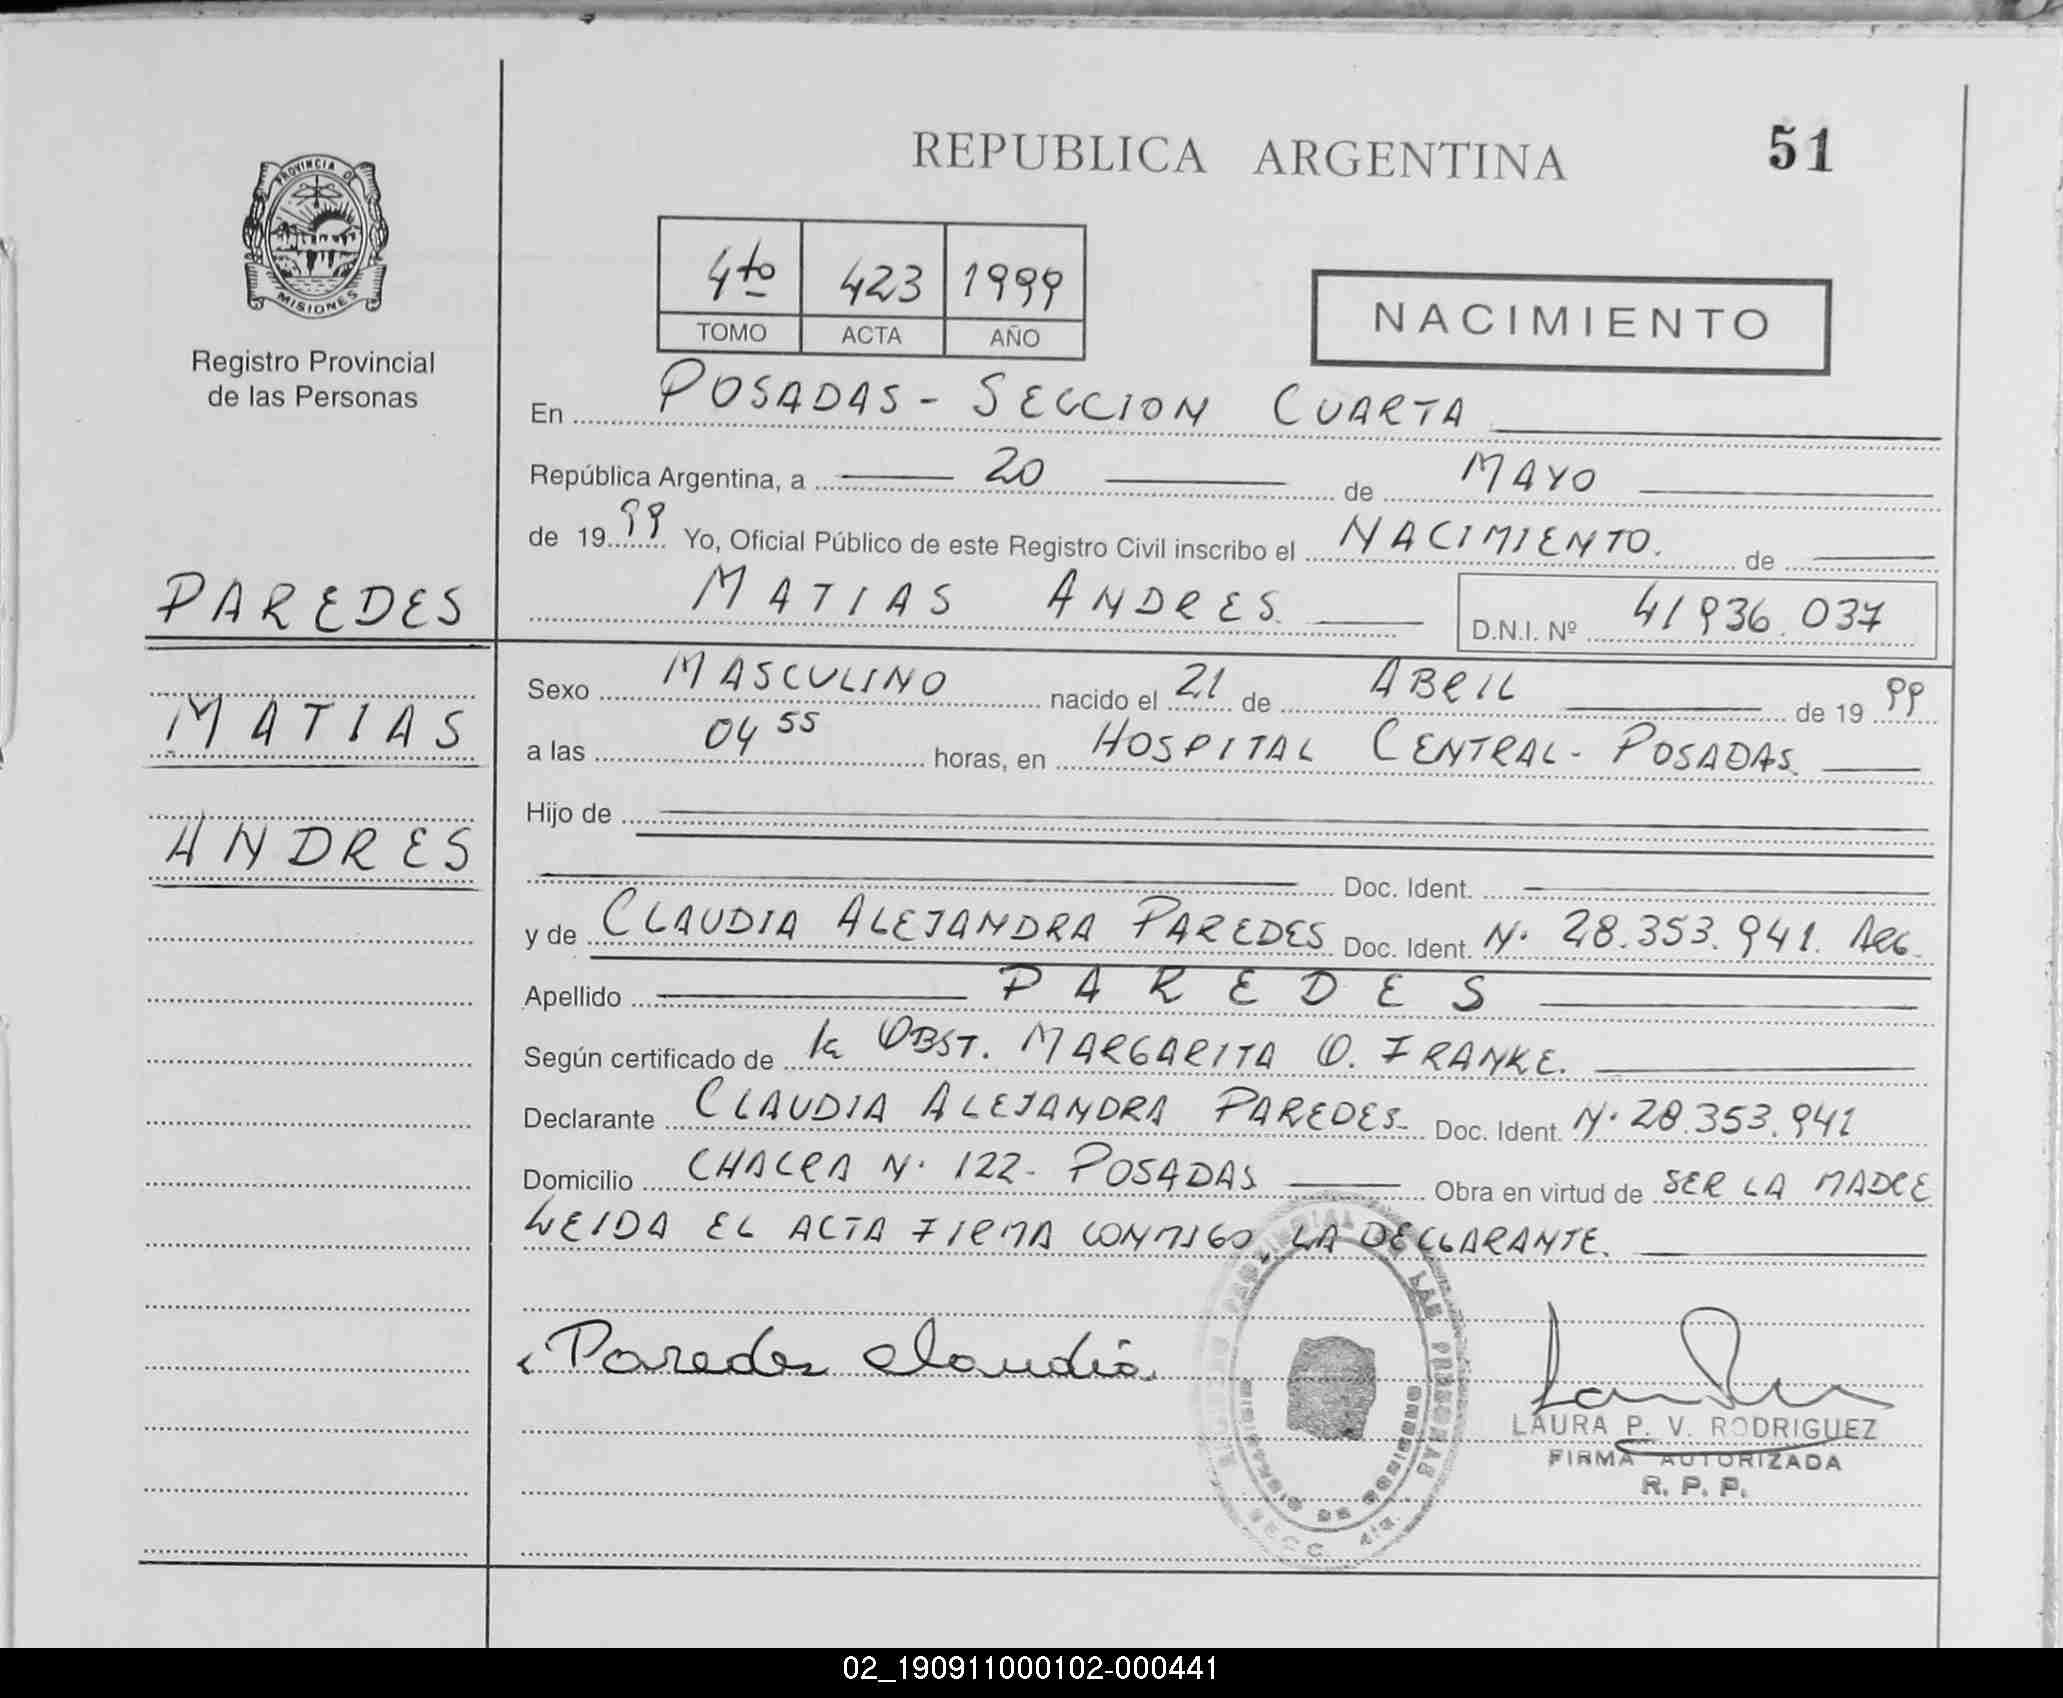 REPUBLICA ARGENTINA
51
PROVINCIA DE
MISIONES
Registro Provincial
de las Personas
4to 423 1999
TOMO ACTA AÑO
NACIMIENTO
En POSADAS - SECCION CUARTA
República Argentina, a 20 de MAYO
de 1999 Yo, Oficial Público de este Registro Civil inscribo el NACIMIENTO. de
MATIAS ANDRES D.N.I. Nº 41936.037
PAREDES
MATIAS
ANDRES
Sexo MASCULINO nacido el 21 de ABRIL de 1999
a las 04 55 horas, en HOSPITAL CENTRAL - POSADAS
Hijo de
Doc. Ident.
y de CLAUDIA ALEJANDRA PAREDES Doc. Ident. N. 28.353.941. ARG.
Apellido PAREDES
Según certificado de la OBST. MARGARITA O. FRANKE.
Declarante CLAUDIA ALEJANDRA PAREDES Doc. Ident. N. 28.353.941
Domicilio CHACRA N. 122 - POSADAS Obra en virtud de SER LA MADRE
LEIDA EL ACTA FIRMA CONMIGO, LA DECLARANTE.
Paredes Claudia
LAURA P. V. RODRIGUEZ
FIRMA AUTORIZADA
R. P. P.
REGISTRO PROVINCIAL DE LAS PERSONAS
SECC. 4ta.
02_190911000102-000441